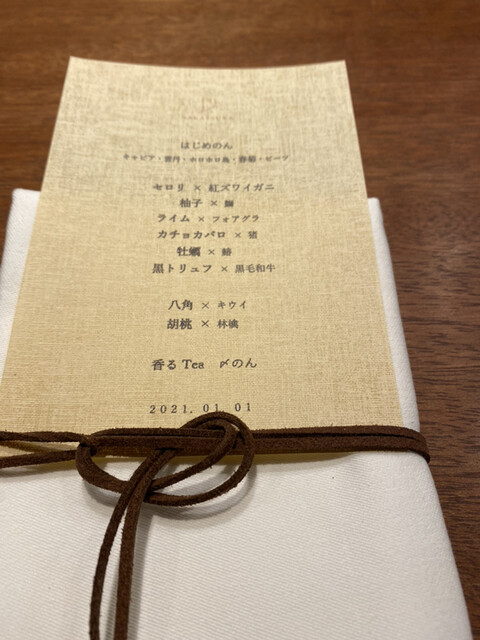 はじめのん
キャビア・雲丹・ホロホロ鳥・春菊・ビーツ
セロリ × 紅ズワイガニ
柚子 × 鰤
ライム × フォアグラ
カチョカバロ × 猪
牡蠣 × 鰆
黒トリュフ × 黒毛和牛
八角 × キウイ
胡桃 × 林檎
香るTea 〆のん
2021. 01. 01